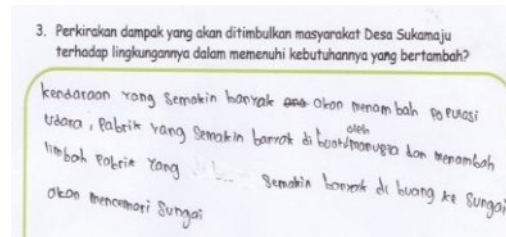 3. Perkirakan dampak yang akan ditimbulkan masyarakat Desa Sukamaju
terhadap lingkungannya dalam memenuhi kebutuhannya yang bertambah?
kendaraan yang semakin banyak akan menambah populasi
udara, pabrik yang semakin banyak di buat oleh manusia dan menambah
limbah pabrik yang semakin banyak di buang ke sungai
akan mencemari sungai